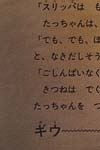 「スリッパは　も
たっちゃんは、
「でも、でも、ほ
と、なきだしそう
「ごしんぱいなく
きつねは　ぐ
たっちゃんを　つ
ギウ